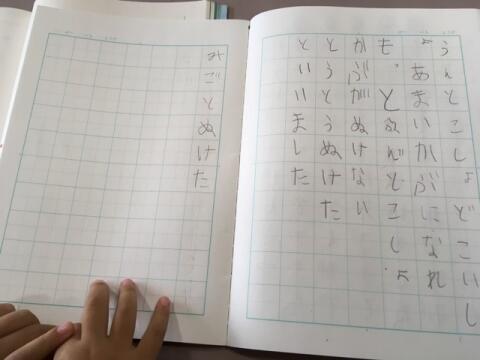 うんとこしょどこいし
ょあまいかぶになれ
とこしょ
かぶがぬけない
とうとうぬけた
といいました
みごとぬけた